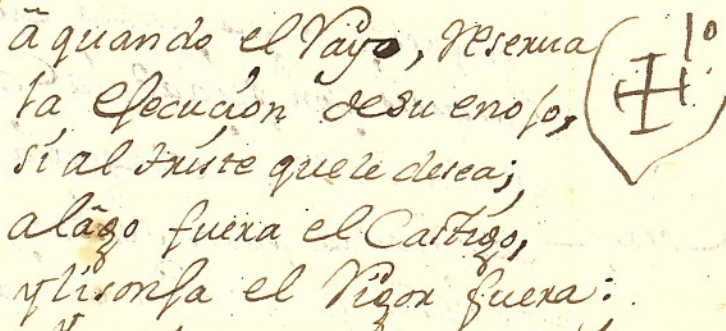 ã quando el Rayo, reserua 1º
la efecucion de su enojo,
si al triste que le desea;
alãgo fuera el Castigo,
y lisonja el Rigor fuera: